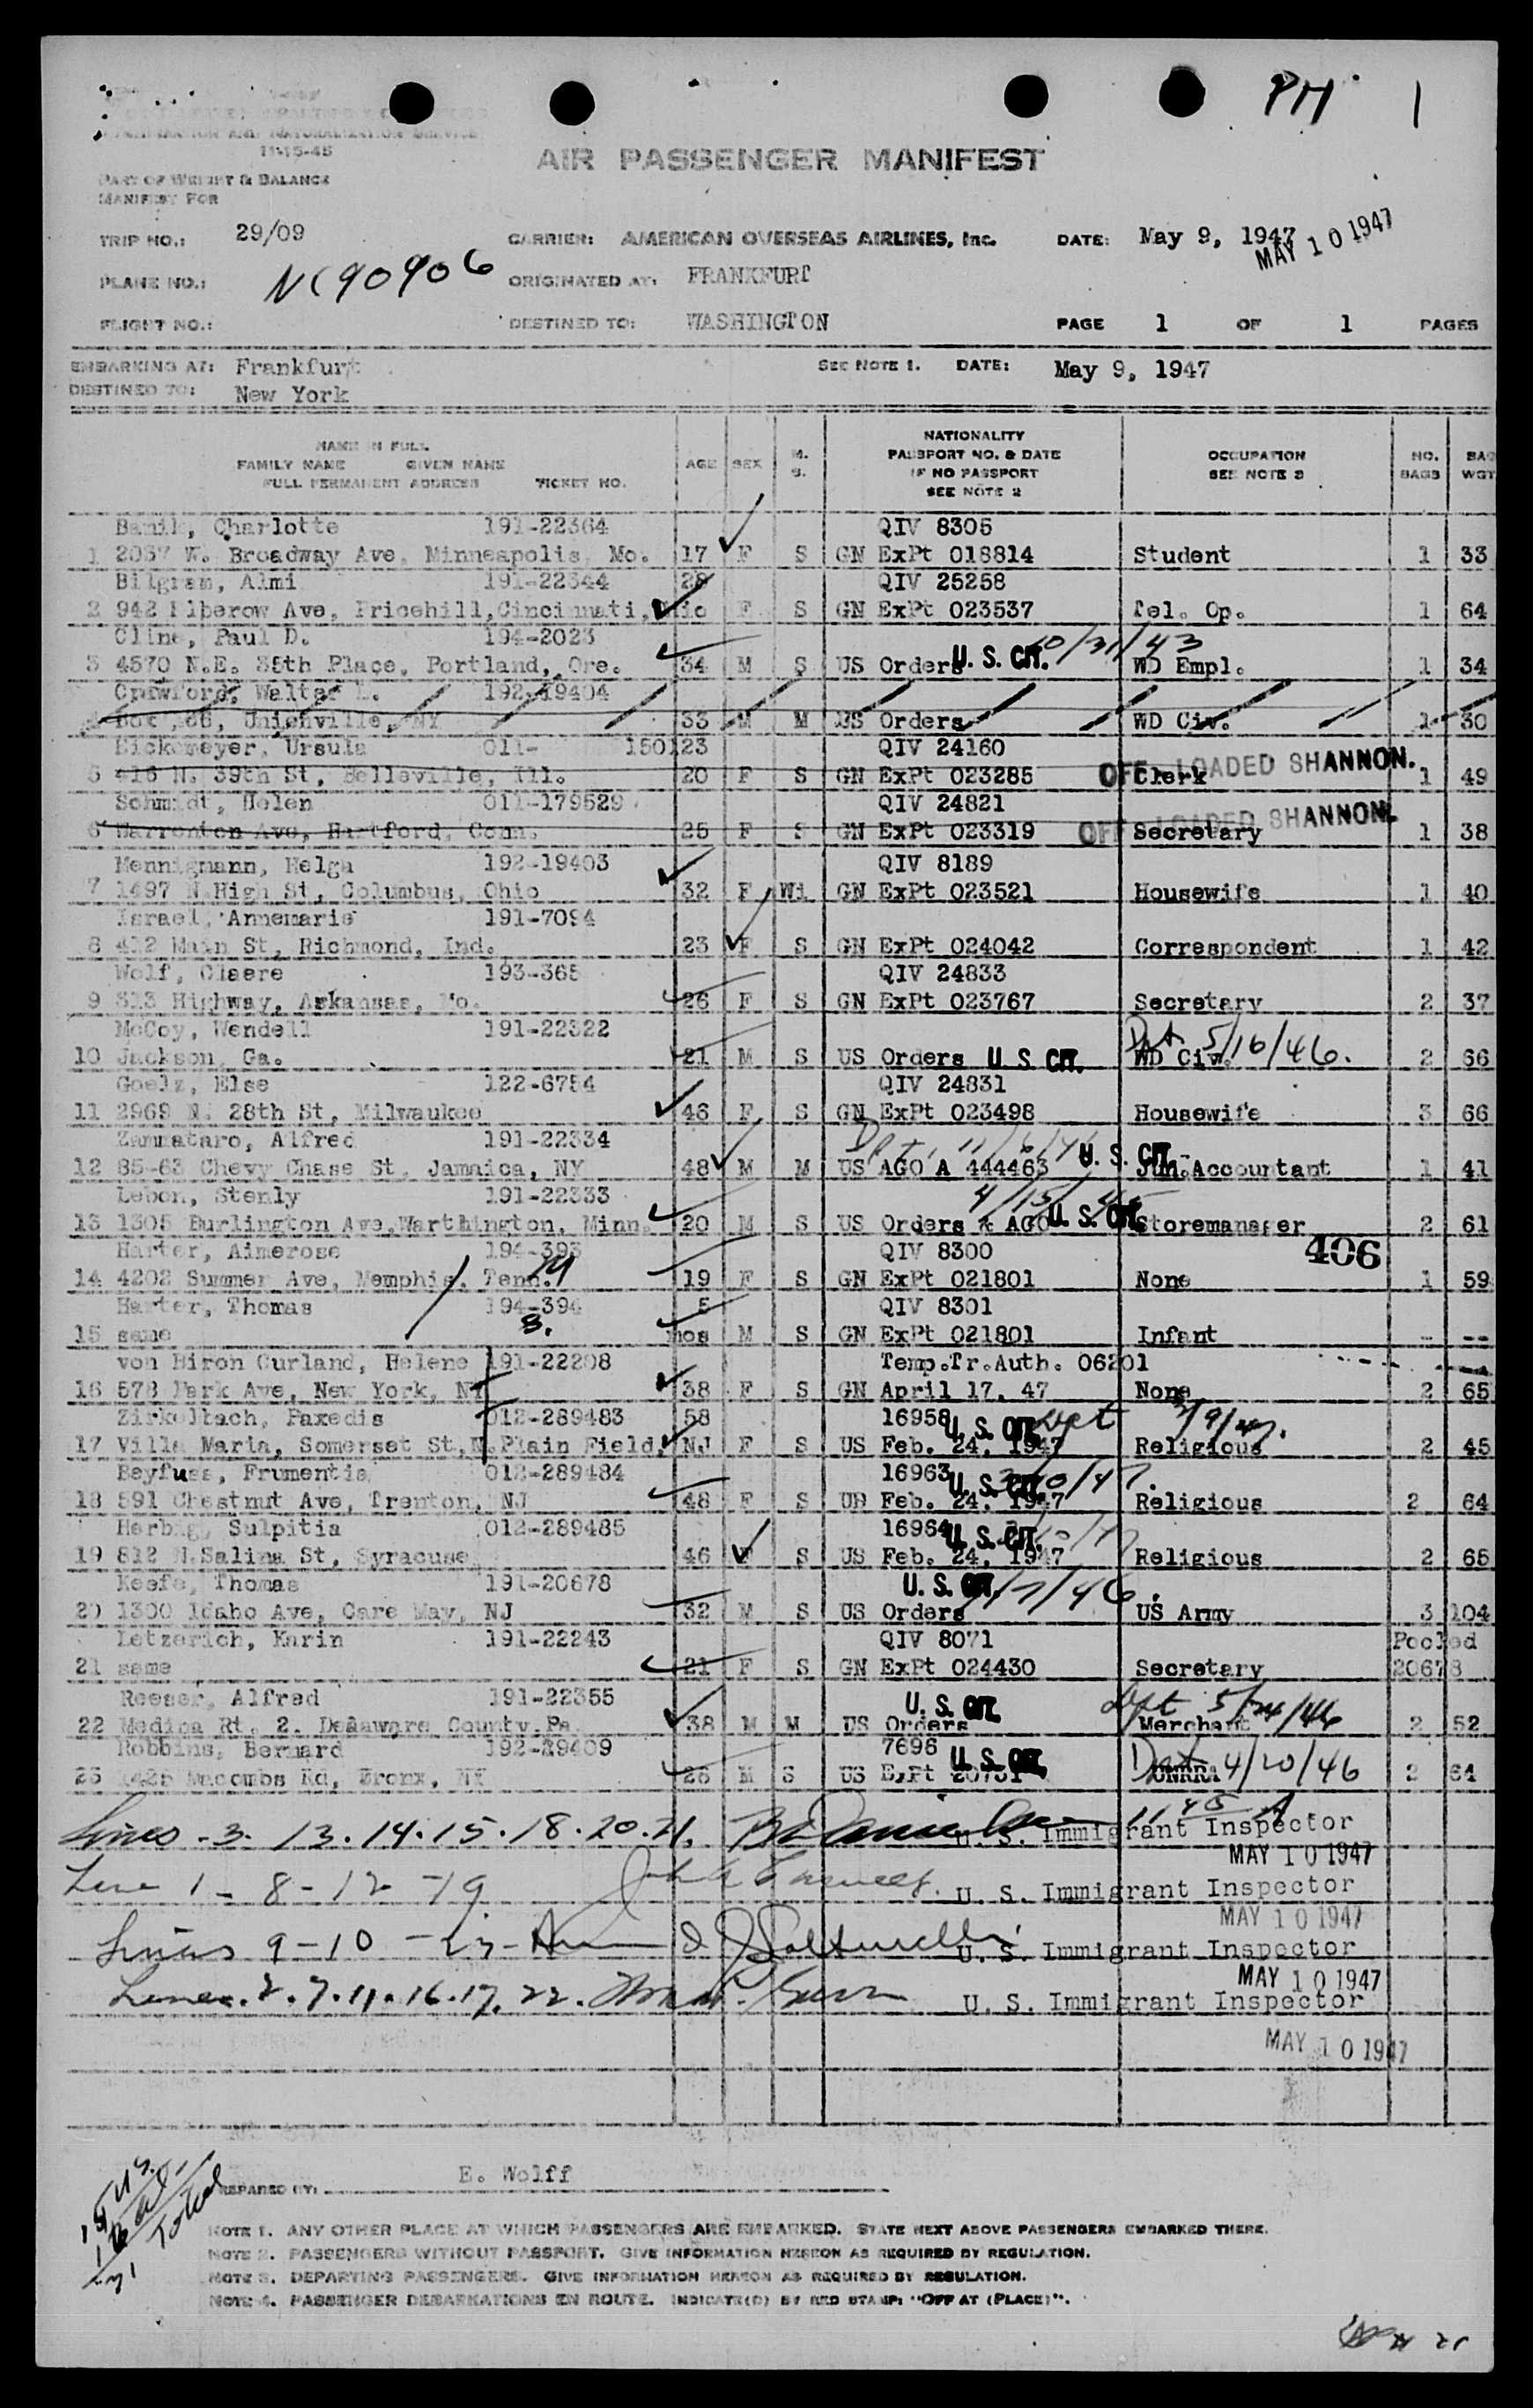 PM 1
IMMIGRATION AND NATURALIZATION SERVICE
11-15-45
AIR PASSENGER MANIFEST
PART OF WEIGHT & BALANCE
MANIFEST FOR
TRIP NO.: 29/09 CARRIER: AMERICAN OVERSEAS AIRLINES, Inc. DATE: May 9, 1947
MAY 10 1947
PLANE NO.: NC90906 ORIGINATED AT: FRANKFURT
FLIGHT NO.: DESTINED TO: WASHINGTON PAGE 1 OF 1 PAGES
EMBARKING AT: Frankfurt SEE NOTE 1. DATE: May 9, 1947
DESTINED TO: New York
NAME IN FULL
FAMILY NAME GIVEN NAME
FULL PERMANENT ADDRESS TICKET NO.
AGE SEX M. S.
NATIONALITY
PASSPORT NO. & DATE
IF NO PASSPORT
SEE NOTE 2
OCCUPATION
SEE NOTE 3
NO. BAGS
BAG WGT
Banik, Charlotte 191-22364 QIV 8305
1 2037 W. Broadway Ave, Minneapolis, Mo. 17 F S GN ExPt 018814 Student 1 33
Bilgram, Almi 191-22344 28 QIV 25258
2 942 Elberow Ave, Pricehill, Cincinnati, Ohio F S GN ExPt 023537 Tel. Op. 1 64
Cline, Paul D. 194-2023 10/31/43
3 4570 N.E. 35th Place, Portland, Ore. 34 M S US Orders U. S. CIT. WD Empl. 1 34
Crawford, Walter L. 192-19404
4 Box 86, Unionville, NY 33 M M US Orders WD Civ. 1 30
Eickemeyer, Ursula 011- 150123 QIV 24160
5 416 N. 39th St, Belleville, Ill. 20 F S GN ExPt 023285 Clerk OFF LOADED SHANNON. 1 49
Schmidt, Helen 011-179529 QIV 24821
6 Warrenton Ave, Hartford, Conn. 25 F S GN ExPt 023319 Secretary OFF LOADED SHANNON. 1 38
Mennigmann, Helga 192-19403 QIV 8189
7 1497 N.High St, Columbus, Ohio 32 F Wi GN ExPt 023521 Housewife 1 40
Israel, Annemarie 191-7094
8 412 Main St, Richmond, Ind. 23 F S GN ExPt 024042 Correspondent 1 42
Wolf, Claere 193-365 QIV 24833
9 313 Highway, Arkansas, Mo. 26 F S GN ExPt 023767 Secretary 2 37
McCoy, Wendell 191-22322 Dpt 5/16/46.
10 Jackson, Ga. 21 M S US Orders U. S. CIT. WD Civ. 2 66
Goelz, Else 122-6754 QIV 24831
11 2969 N. 28th St, Milwaukee 46 F S GN ExPt 023498 Housewife 3 66
Zammataro, Alfred 191-22334
12 85-63 Chevy Chase St. Jamaica, NY 48 M M US AGO A 444463 U. S. CIT. Jun.Accountant 1 41
Lebon, Stenly 191-22333 4/15/46
13 1305 Burlington Ave, Warthington, Minn. 20 M S US Orders & AGO U. S. CIT. Storemanager 2 61
Harter, Aimerose 194-393 QIV 8300 406
14 4202 Summer Ave, Memphis, Tenn. 19 F S GN ExPt 021801 None 1 59
Harter, Thomas 194-394 5 QIV 8301
15 same mos M S GN ExPt 021801 Infant - --
von Biron Curland, Helene 191-22208 Temp.Tr.Auth. 06201
16 578 Park Ave, New York, NY 38 F S GN April 17, 47 None 2 65
Zirkelbach, Paxedis 012-289483 58 16958 U. S. CIT. Dpt
17 Villa Maria, Somerset St, N.Plain Field, NJ F S US Feb. 24, 1947 Religious 2 45
Beyfuss, Frumentia 012-289484 16963 U. S. CIT.
18 591 Chestnut Ave, Trenton, NJ 48 F S US Feb. 24, 1947 Religious 2 64
Herbig, Sulpitia 012-289485 16964 U. S. CIT.
19 812 N.Salina St, Syracuse 46 F S US Feb. 24, 1947 Religious 2 65
Keefe, Thomas 191-20678 U. S. CIT.
20 1300 Idaho Ave, Care May, NJ 32 M S US Orders US Army 3 104
Letzerich, Karin 191-22243 QIV 8071 Pooled
21 same 21 F S GN ExPt 024430 Secretary 20678
Reeser, Alfred 191-22355 U. S. CIT. Dpt 5/24/46
22 Media Rt. 2. Delaware County, Pa. 38 M M US Orders Merchant 2 52
Robbins, Bernard 192-19409 7696 U. S. CIT. Dpt 4/20/46
23 1425 Macombs Rd, Bronx, NY 25 M S US ExPt 20751 UNRRA 2 64
Lines - 3. 13. 14. 15. 18. 20. 21. U. S. Immigrant Inspector
MAY 10 1947
Line 1 - 8 - 12 - 19 U. S. Immigrant Inspector
MAY 10 1947
Lines 9 - 10 - 23 U. S. Immigrant Inspector
MAY 10 1947
Lines. 2. 7. 11. 16. 17. 22. U. S. Immigrant Inspector
MAY 10 1947
Total
PREPARED BY: E. Wolff
NOTE 1. ANY OTHER PLACE AT WHICH PASSENGERS ARE EMBARKED. STATE NEXT ABOVE PASSENGERS EMBARKED THERE.
NOTE 2. PASSENGERS WITHOUT PASSPORT. GIVE INFORMATION HEREON AS REQUIRED BY REGULATION.
NOTE 3. DEPARTING PASSENGERS. GIVE INFORMATION HEREON AS REQUIRED BY REGULATION.
NOTE 4. PASSENGER DEBARKATIONS EN ROUTE. INDICATE(D) BY RED STAMP: "OFF AT (PLACE)".